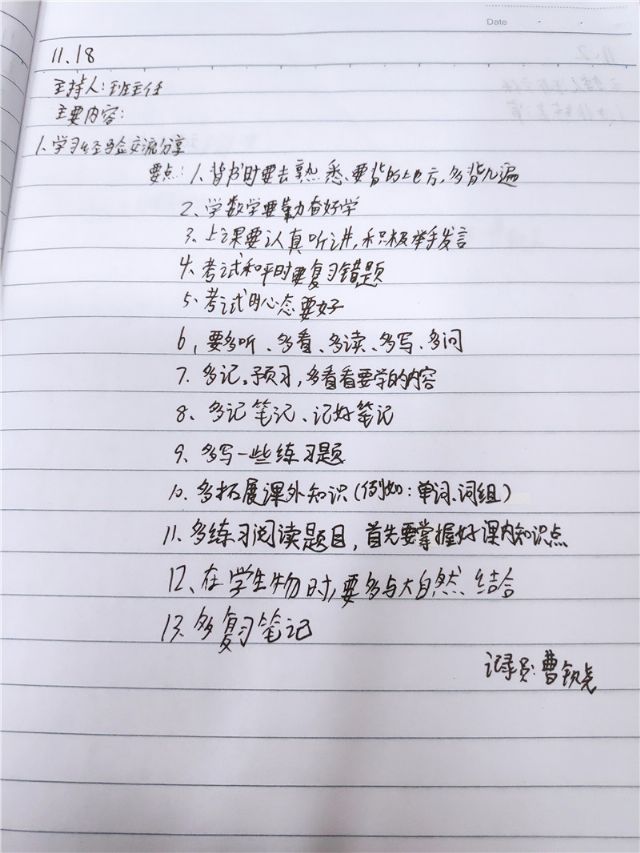 Date
11.18
主持人:班主任
主要内容:
1.学习经验交流分享
要点:1.背书时要去熟悉要背的地方,多背几遍
2.学数学要努力奋好学
3.上课要认真听讲,积极举手发言
4.考试和平时要复习错题
5.考试的心态要好
6,要多听、多看、多读、多写、多问
7.多记。预习,多看看要学的内容
8、多记笔记、记好笔记
9.多写一些练习题
10.多拓展课外知识(例如:单词.词组)
11.多练习阅读题目,首先要掌握好课内知识点
12、在学生物时,要多与大自然结合
13.多复习笔记
记录员:曹